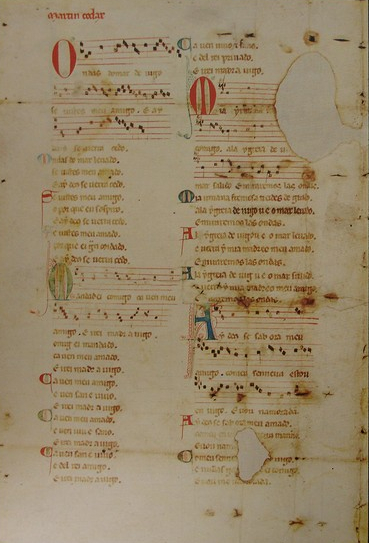 martin codax
Ondas do mar de vigo
se vistes meu amigo. E ay
deus se uerra cedo.
Ondas do mar leuado,
se uistes meu amado.
E ay deus se uerra cedo.
Se uistes meu amigo,
o por que eu sospiro,
E ay deus se uerra cedo.
Se uistes meu amado,
por que ei gran coidado,
E ay deus se uerra cedo.
Mandad ei comigo ca uen meu
amigo. E irei madr a uigo.
comig ei mandado,
ca uen meu amado,
E irei madr a uigo.
Ca uen meu amigo,
e uen san e uiuo,
E irei madr a uigo.
Ca uen meu amado,
e uen uiu e sano,
E irei madr a uigo.
Ca uen san e uiuo,
e del rei amigo,
E irei madr a uigo.
Ca uen uiu e sano,
e del rei priuado,
E irei madr a uigo.
Mia yrmana
comigo, a la ygreia de u
mar salido. E miraremos las ondas.
Mia irmana fremosa treides de grado,
a la ygreia de uigo u e o mar leuado,
E miraremos las ondas.
A la ygreia de uigo u e o mar leuado,
e uerra y mia madre e meu amado,
E miraremos las ondas.
A la ygreia de uigo u e o mar salido,
e uerra y mia madre e meu amigo,
E miraremos las ondas.
Ay deus se sab ora meu
amigo, com eu senneira estou
en uigo. E uou namorada.
Ay deus se sab ora meu amado,
E uou